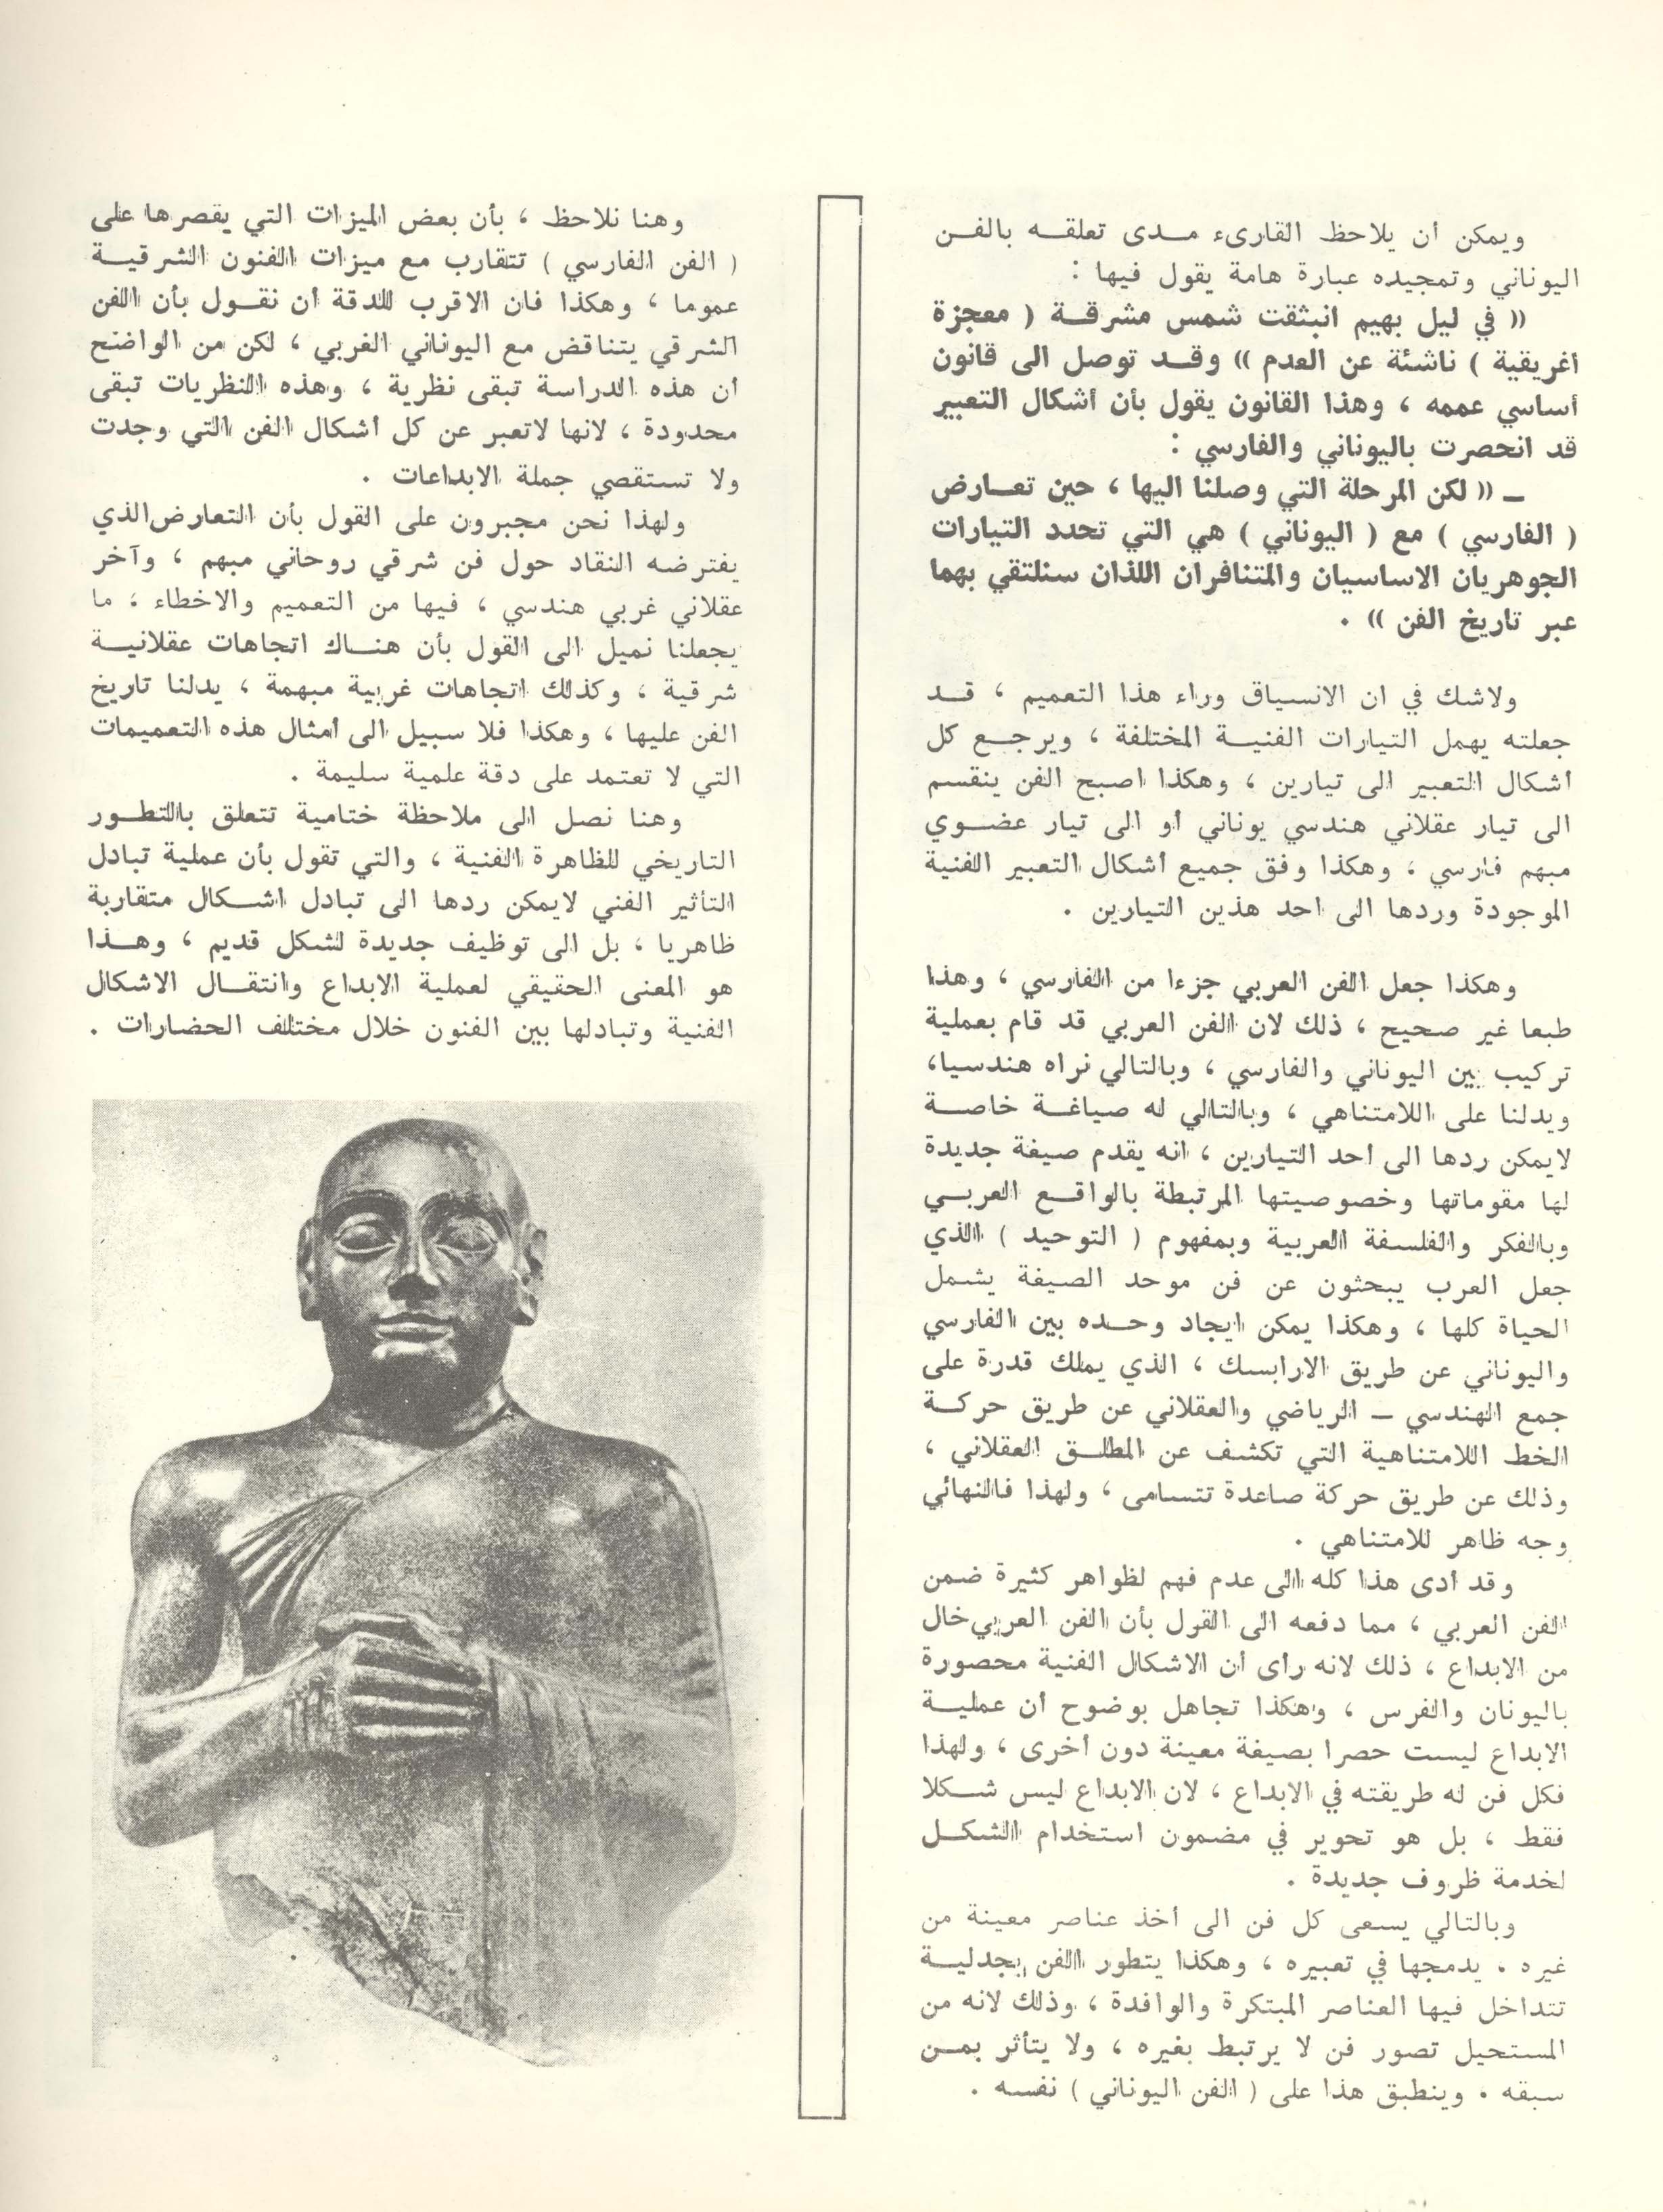 ويمكن أن يلاحظ القارىء مدى تعلقه بالفن
اليوناني وتمجيده عبارة هامة يقول فيها :
(( في ليل بهيم انبثقت شمس مشرقة ( معجزة
اغريقية ) ناشئة عن العدم )) وقد توصل الى قانون
أساسي عممه ، وهذا القانون يقول بأن أشكال التعبير
قد انحصرت باليوناني والفارسي :
– (( لكن المرحلة التي وصلنا اليها ، حين تعارض
( الفارسي ) مع ( اليوناني ) هي التي تحدد التيارات
الجوهريان الاساسيان والمتنافران اللذان سنلتقي بهما
عبر تاريخ الفن )) .
ولاشك في ان الانسياق وراء هذا التعميم ، قد
جعلته يهمل التيارات الفنية المختلفة ، ويرجع كل
أشكال التعبير الى تيارين ، وهكذا اصبح الفن ينقسم
الى تيار عقلاني هندسي يوناني أو الى تيار عضوي
مبهم فارسي ، وهكذا وفق جميع أشكال التعبير الفنية
الموجودة وردها الى احد هذين التيارين .
وهكذا جعل الفن العربي جزءا من الفارسي ، وهذا
طبعا غير صحيح ، ذلك لان الفن العربي قد قام بعملية
تركيب بين اليوناني والفارسي ، وبالتالي نراه هندسيا،
ويدلنا على اللامتناهي ، وبالتالي له صياغة خاصة
لايمكن ردها الى أحد التيارين ، انه يقدم صيغة جديدة
لها مقوماتها وخصوصيتها المرتبطة بالواقع العربي
وبالفكر والفلسفة العربية وبمفهوم ( التوحيد ) الذي
جعل العرب يبحثون عن فن موحد الصيغة يشمل
الحياة كلها ، وهكذا يمكن ايجاد وحده بين الفارسي
واليوناني عن طريق الارابسك ، الذي يملك قدرة على
جمع الهندسي – الرياضي والعقلاني عن طريق حركة
الخط اللامتناهية التي تكشف عن المطلق العقلاني ،
وذلك عن طريق حركة صاعدة تتسامى ، ولهذا فالنهائي
وجه ظاهر للامتناهي .
وقد أدى هذا كله الى عدم فهم لظواهر كثيرة ضمن
الفن العربي ، مما دفعه الى القول بأن الفن العربي خال
من الابداع ، ذلك لانه رأى أن الاشكال الفنية محصورة
باليونان والفرس ، وهكذا تجاهل بوضوح أن عملية
الابداع ليست حصرا بصيغة معينة دون أخرى ، ولهذا
فكل فن له طريقته في الابداع ، لان الابداع ليس شكلا
فقط ، بل هو تحوير في مضمون استخدام الشكل
لخدمة ظروف جديدة .
وبالتالي يسعى كل فن الى أخذ عناصر معينة من
غيره . يدمجها في تعبيره ، وهكذا يتطور الفن بجدلية
تتداخل فيها العناصر المبتكرة والوافدة ، وذلك لانه من
المستحيل تصور فن لا يرتبط بغيره ، ولا يتأثر بمن
سبقه . وينطبق هذا على ( الفن اليوناني ) نفسه .
وهنا نلاحظ ، بأن بعض الميزات التي يقصرها على
( الفن الفارسي ) تتقارب مع ميزات الفنون الشرقية
عموما ، وهكذا فان الاقرب للدقة أن نقول بأن الفن
الشرقي يتناقض مع اليوناني الغربي ، لكن من الواضح
أن هذه الدراسة تبقى نظرية ، وهذه النظريات تبقى
محدودة ، لانها لاتعبر عن كل أشكال الفن التي وجدت
ولا تستقصي جملة الابداعات .
ولهذا نحن مجبرون على القول بأن التعارض الذي
يفترضه النقاد حول فن شرقي روحاني مبهم ، وآخر
عقلاني غربي هندسي ، فيها من التعميم والاخطاء ، ما
يجعلنا نميل الى القول بأن هناك اتجاهات عقلانية
شرقية ، وكذلك اتجاهات غربية مبهمة ، يدلنا تاريخ
الفن عليها ، وهكذا فلا سبيل الى أمثال هذه التعميمات
التي لا تعتمد على دقة علمية سليمة .
وهنا نصل الى ملاحظة ختامية تتعلق بالتطور
التاريخي للظاهرة الفنية ، والتي تقول بأن عملية تبادل
التأثير الفني لايمكن ردها الى تبادل اشكال متقاربة
ظاهريا ، بل الى توظيف جديدة لشكل قديم ، وهذا
هو المعنى الحقيقي لعملية الابداع وانتقال الاشكال
الفنية وتبادلها بين الفنون خلال مختلف الحضارات .